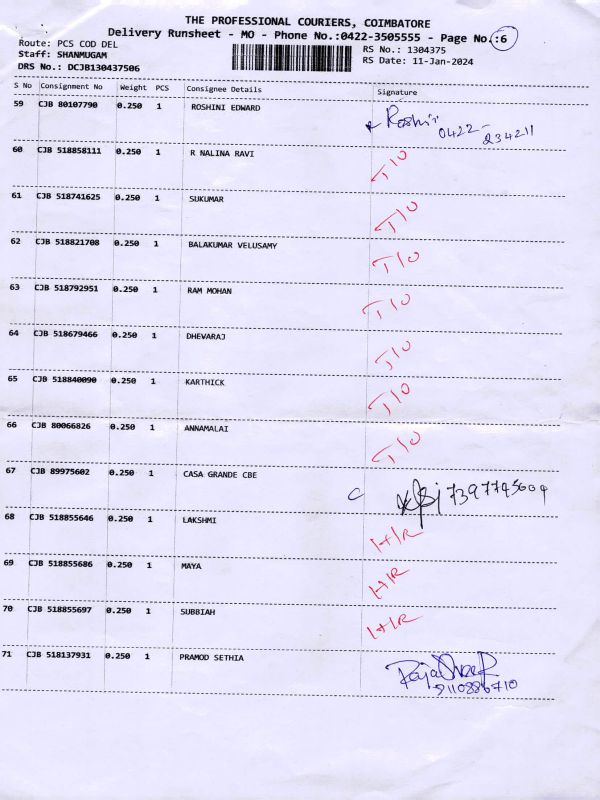 THE PROFESSIONAL COURIERS, COIMBATORE
Delivery Runsheet - MO - Phone No.:0422-3505555 - Page No.:6
Route: PCS COD DEL RS No.: 1304375
Staff: SHANMUGAM RS Date: 11-Jan-2024
DRS No.: DCJB130437506
S No Consignment No Weight PCS Consignee Details Signature
59 CJB 80107790 0.250 1 ROSHINI EDWARD Roshini
0422-
234211
60 CJB 518858111 0.250 1 R NALINA RAVI T/O
61 CJB 518741625 0.250 1 SUKUMAR T/O
62 CJB 518821708 0.250 1 BALAKUMAR VELUSAMY T/O
63 CJB 518792951 0.250 1 RAM MOHAN T/O
64 CJB 518679466 0.250 1 DHEVARAJ T/O
65 CJB 518840090 0.250 1 KARTHICK T/O
66 CJB 80066826 0.250 1 ANNAMALAI T/O
67 CJB 89975602 0.250 1 CASA GRANDE CBE C 7397745604
68 CJB 518855646 0.250 1 LAKSHMI H/R
69 CJB 518855686 0.250 1 MAYA H/R
70 CJB 518855697 0.250 1 SUBBIAH H/R
71 CJB 518137931 0.250 1 PRAMOD SETHIA
9110886710